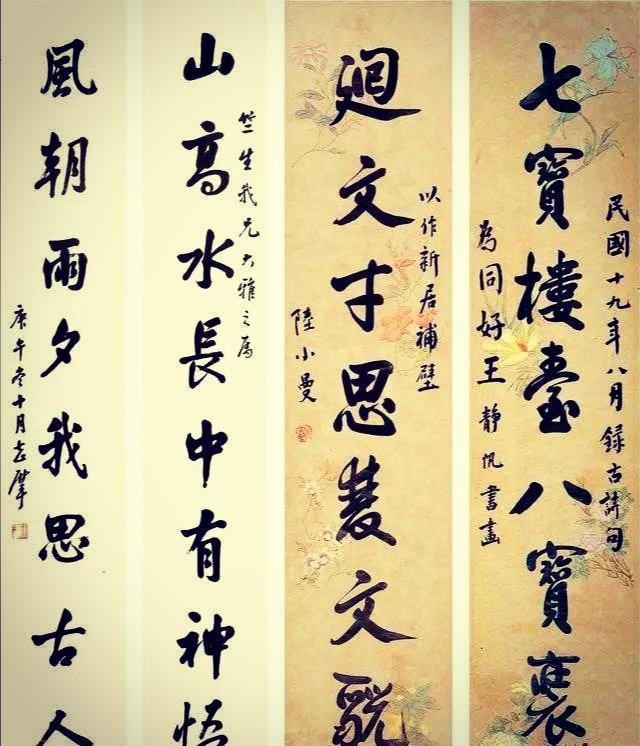 民國十九年八月錄古詩句
七寶樓臺八寶
為同好王靜帆書畫
以作新居補壁
廻文才思 文
陸小曼
竺生我兄大雅之屬
山高水長中有神悟
風朝雨夕我思古人
庚午冬十月志摩